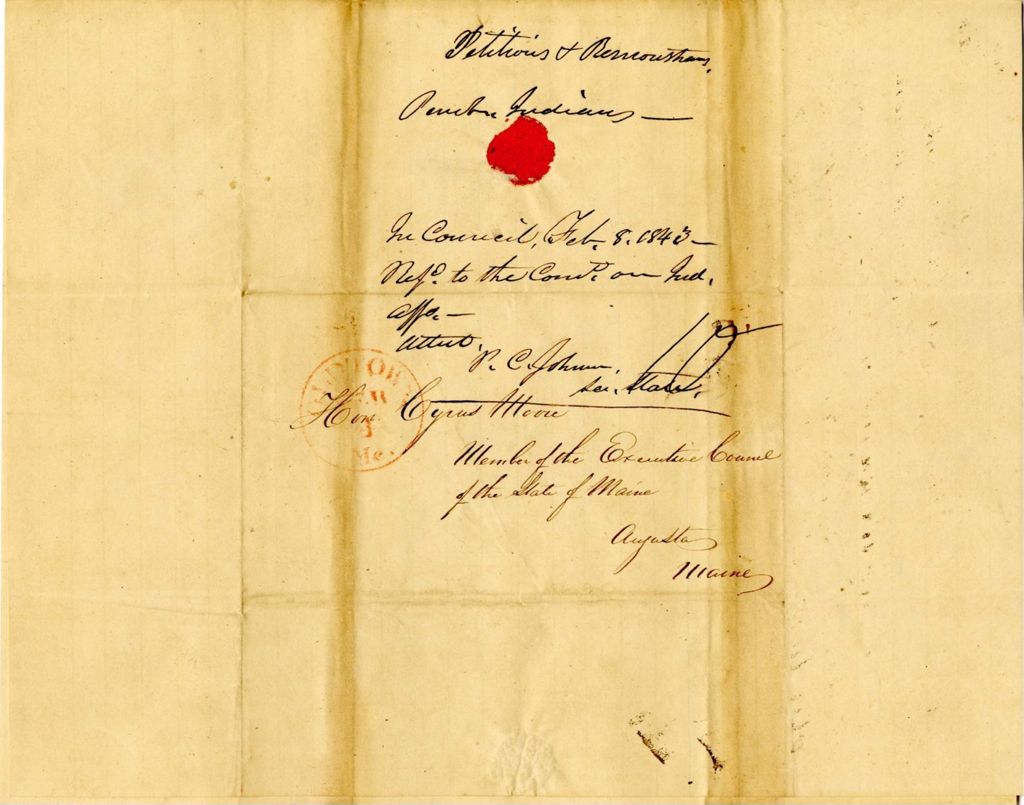 Petitions & Remonstrans.
Penobs. Indians —
In Council, Feb. 8. 1843 —
Refd. to the Comte. on Ind.
Affs. —
Attest,
P. C. Johnson,
Sec. State.
Hon. Cyrus Moore
Member of the Executive Council
of the State of Maine
Augusta
Maine
Me.